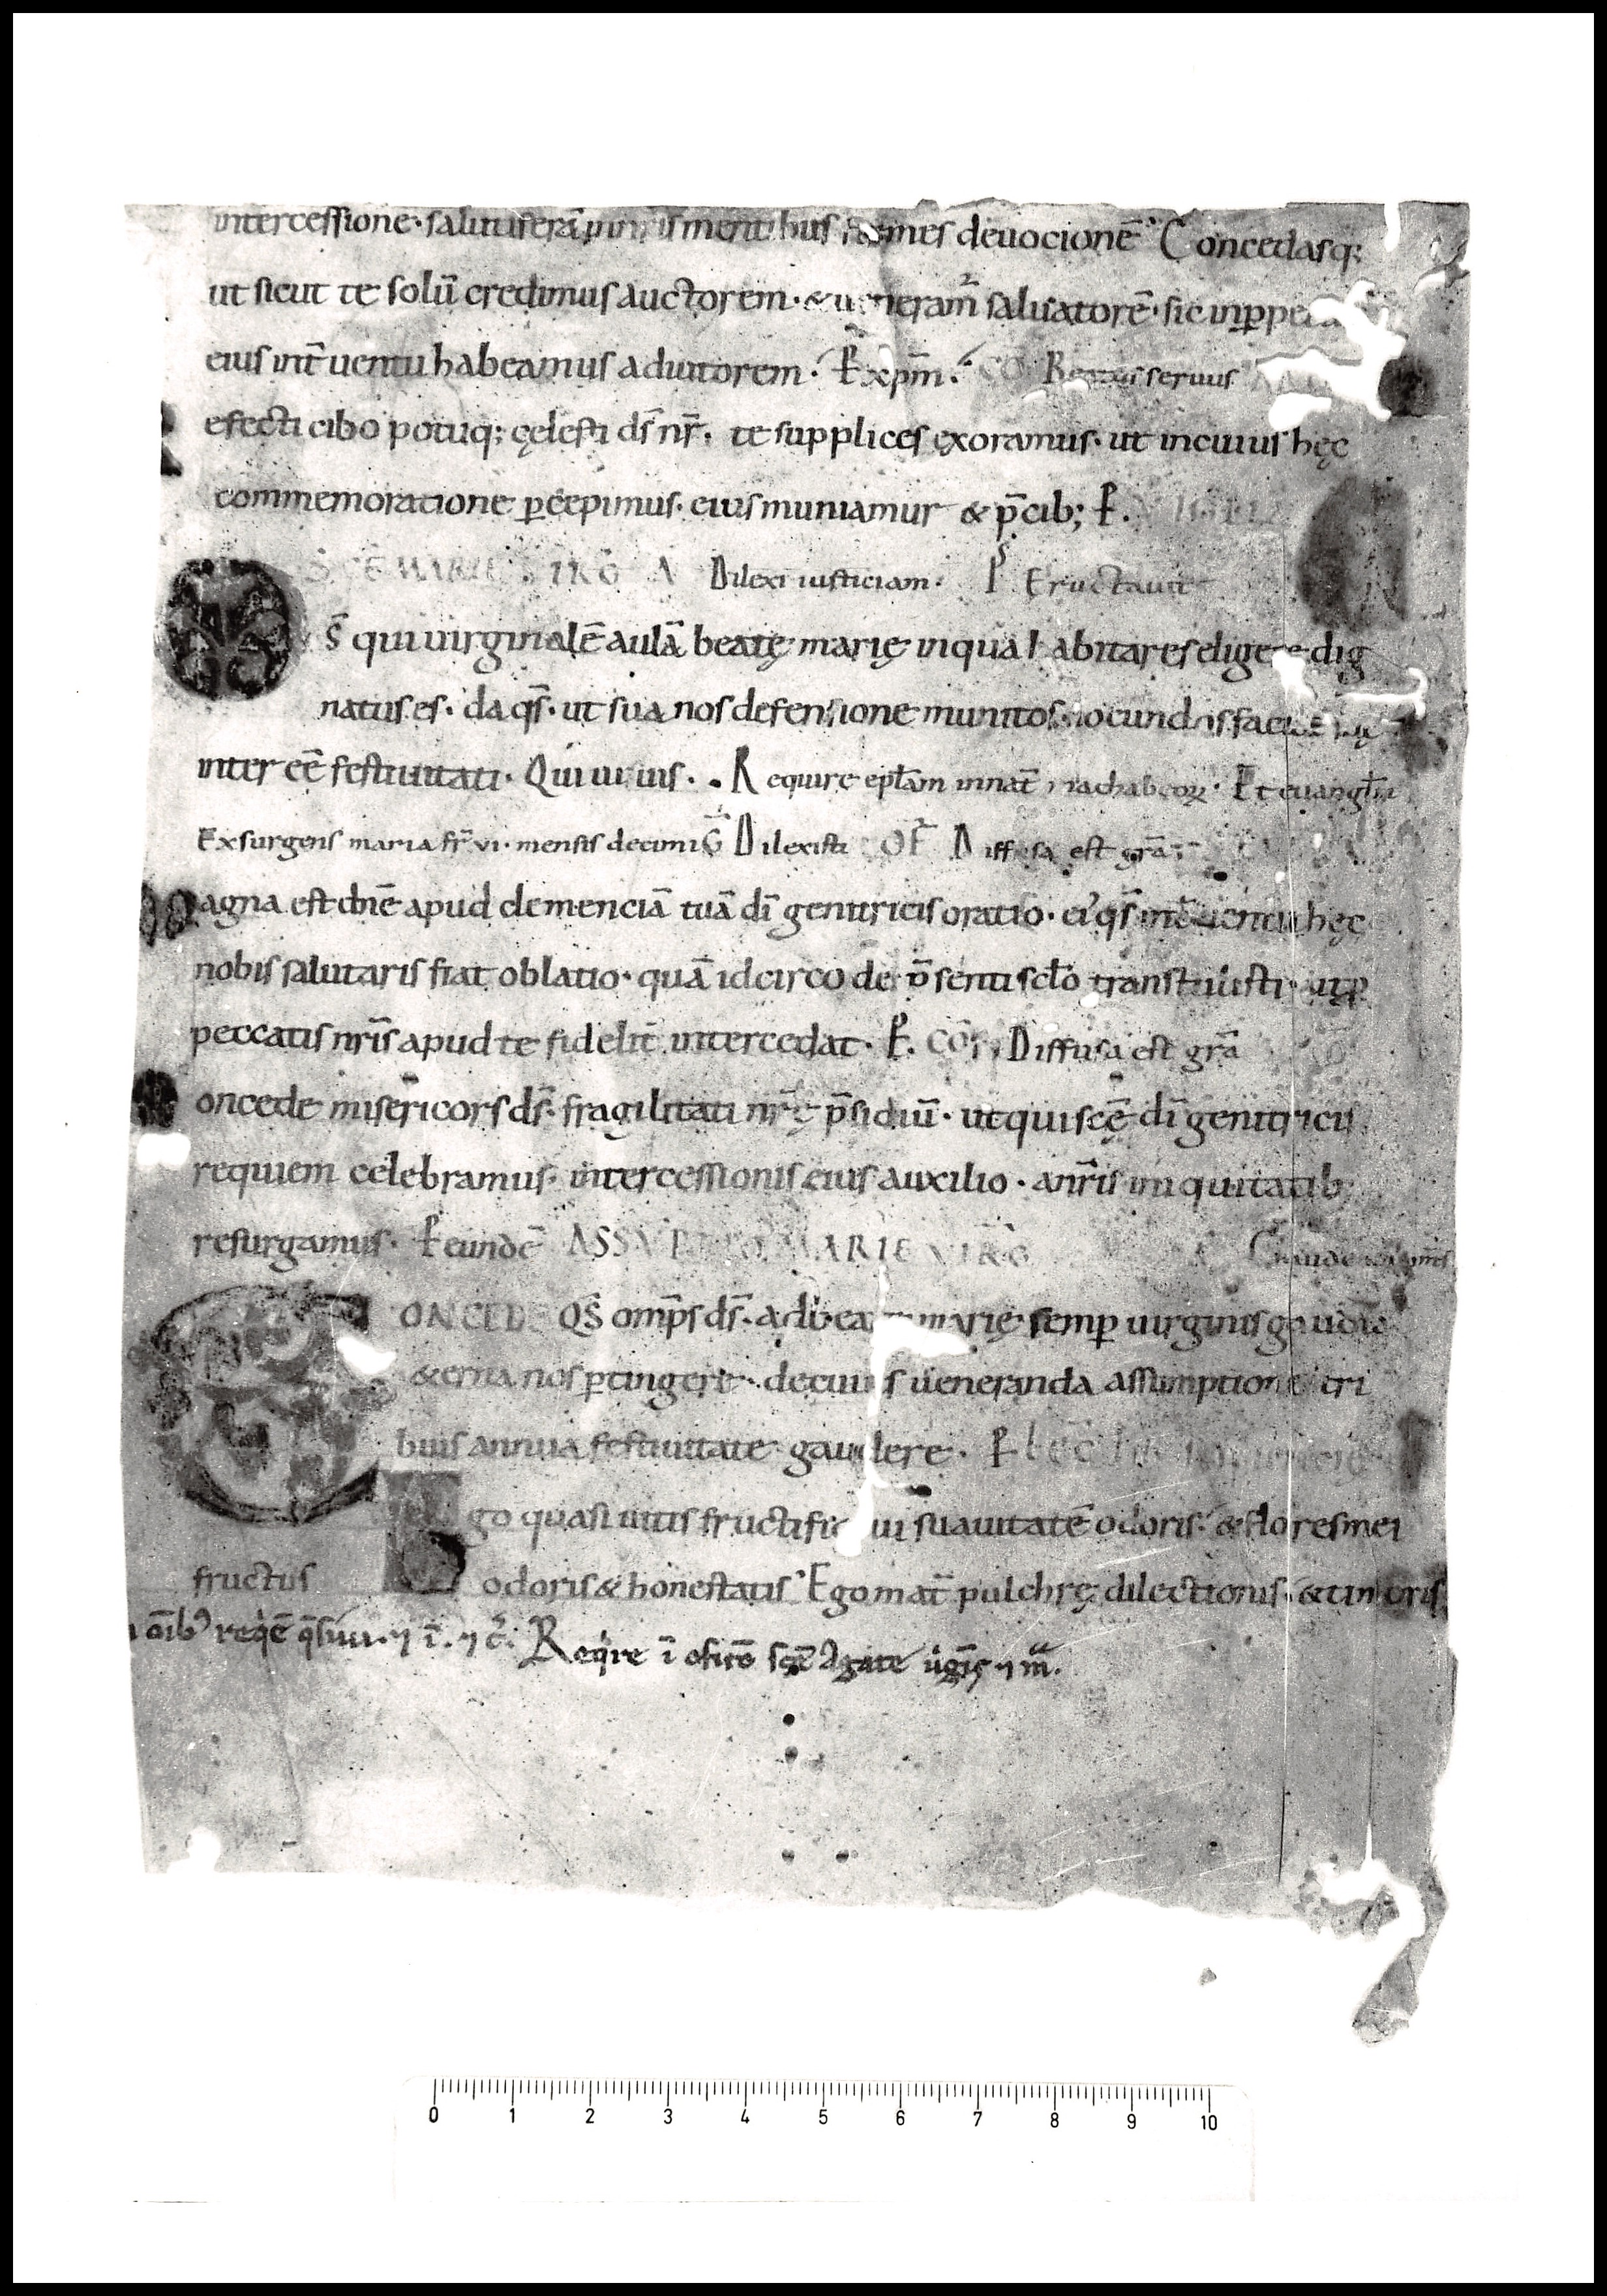 intercessione· salutiferā in nr̄is mentibus firmes deuocionē· Concedasq;
ut sicut te solū credimus auctorem· & ueneram̄ saluatorē· sic in ꝑpetuū
eius int̄uentu habeamus adiutorem· P̄ xp̄m· CŌ Beatus seruus
efecti cibo potuq; cęlesti ds̄ nr̄· te supplices exoramus· ut in cuius hęc
commemoratione ꝑcepimus· eius muniamur & p̄cib; P̄.
SCĒ MARIE VIRḠ A Dilexi iusticiam· Ps̄ Eructauit
s̄ qui uirginalē aulā beatę marię in qua habitares eligere dig
natus es· da qs̄· ut sua nos defensione munitos· iocundos faciat suę
inter eē festiuitati· Qui uiuis· Require epl̄am in nat̄ machabeoꝝ· Et euangl̄iū
Exsurgens maria fr̄ vi· mensis decimi Ḡ Dilexisti OF̄ Diffusa est grā
Magna est dn̄e apud clemenciā tuā dī genitricis oratio· ei' qs̄ int̄uentu hęc
nobis salutaris fiat oblatio· quā idcirco de p̄senti sc̄lo transtulisti· ut ꝓ
peccatis nr̄is apud te fidelit̄ intercedat· P̄. CŌ Diffusa est grā
oncede misericors ds̄· fragilitati nr̄ę p̄sidiū· ut qui sc̄ę dī genitricis
requiem celebramus· intercessionis eius auxilio· a nr̄is iniquitatib;
resurgamus· P̄ eundē ASSVPTIO MARIE VIRḠ Gaude
CONCEDE QS̄ omp̄s ds̄· ad beatę marię semp̄ uirginis gaudia
&erna nos ꝑtingere· de cuius ueneranda assumptione tri
buis annua festiuitate gaudere· P̄ Lec̄ lib̄ sapiencie
Ego quasi uitis fructificaui suauitatē odoris· & flores mei
fructus odoris & honestatis· Ego mat̄ pulchrę dilectionis· & timoris
oīb' reqē q̄siui· ⁊ ī· ⁊ c̄· Reqre ī oficio scē Agate ūgīs· ⁊ m̄.
0 1 2 3 4 5 6 7 8 9 10